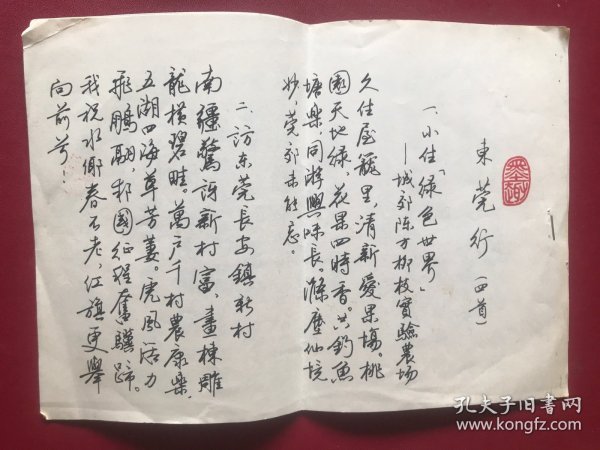 東莞行(四首)
一.小住「绿色世界」
——城郊陈方柳枝實驗農场
久住屋籠里,清新爱果場。桃
園天地緑,花果四時香。共釣魚
塘樂,同游興味長。滌塵仙境
妙,莞郊未能忘。
二.訪东莞長安鎮新村
南疆驚訝新村富,畫棟雕
龍横碧畦。萬户千村農康樂,
五湖四海草芳萋。虎風活力
飛鵬翮,邦國征程奮驥蹄。
我祝水鄉春不老,红旗更舉
向前兮!
孔夫子旧書网
www.kongfz.com